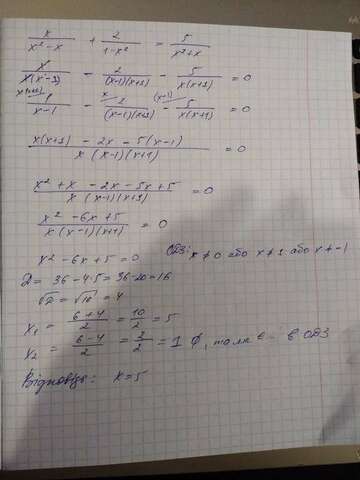 x/(x²-x) + 2/(1-x²) = 5/(x²+x)
x/(x(x-1)) - 2/((x-1)(x+1)) - 5/(x(x+1)) = 0
1/(x-1) - 2/((x-1)(x+1)) - 5/(x(x+1)) = 0
(x(x+1) - 2x - 5(x-1))/(x(x-1)(x+1)) = 0
(x² + x - 2x - 5x + 5)/(x(x-1)(x+1)) = 0
(x² - 6x + 5)/(x(x-1)(x+1)) = 0
x² - 6x + 5 = 0 ОДЗ: x ≠ 0 або x ≠ 1 або x ≠ -1
D = 36 - 4·5 = 36 - 20 = 16
√D = √16 = 4
x₁ = (6+4)/2 = 10/2 = 5
x₂ = (6-4)/2 = 2/2 = 1 ∅, в ОДЗ
Відповідь: x = 5